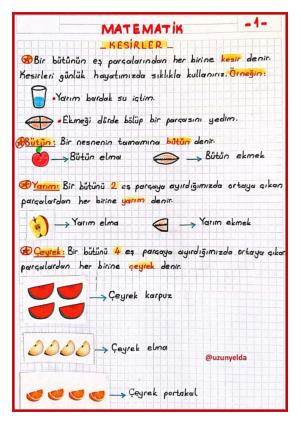 MATEMATİK
-1-
_ KESİRLER _
Bir bütünün eş parçalarından her birine kesir denir.
Kesirleri günlük hayatımızda sıklıkla kullanırız. Örneğin:
• Yarım bardak su içtim.
• Ekmeği dörde bölüp bir parçasını yedim.
Bütün: Bir nesnenin tamamına bütün denir.
→ Bütün elma → Bütün ekmek
Yarım: Bir bütünü 2 eş parçaya ayırdığımızda ortaya çıkan
parçalardan her birine yarım denir.
→ Yarım elma → Yarım ekmek
Çeyrek: Bir bütünü 4 eş parçaya ayırdığımızda ortaya çıkan
parçalardan her birine çeyrek denir.
→ Çeyrek karpuz
→ Çeyrek elma
@uzunyelda
→ Çeyrek portakal